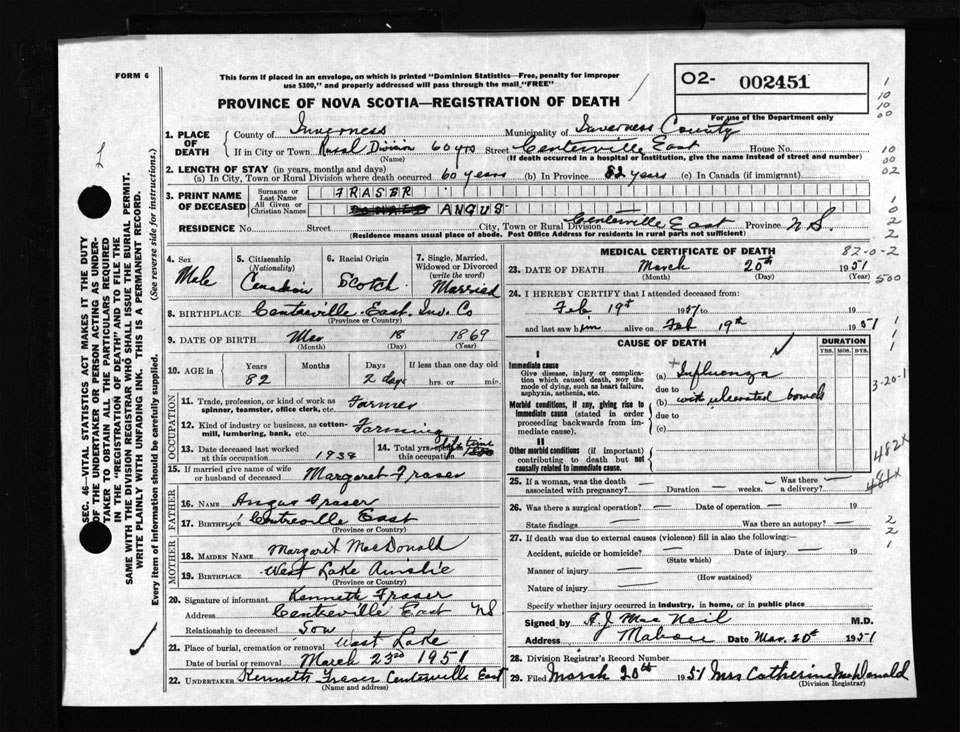 FORM 6
This form if placed in an envelope, on which is printed "Dominion Statistics—Free, penalty for improper
use $300," and properly addressed will pass through the mail "FREE"
O2- 002451
PROVINCE OF NOVA SCOTIA—REGISTRATION OF DEATH
For use of the Department only
1. PLACE OF DEATH
County of Inverness Municipality of Inverness County
If in City or Town Rural Division 60 yrs Street Centerville East House No.
(Name) (If death occurred in a hospital or institution, give the name instead of street and number)
2. LENGTH OF STAY (in years, months and days)
(a) In City, Town or Rural Division where death occurred 60 years (b) In Province 82 years (c) In Canada (if immigrant)
3. PRINT NAME OF DECEASED
Surname or Last Name FRASER
All Given or Christian Names ANGUS
RESIDENCE No. Street City, Town or Rural Division Centerville East Province N.S.
(Residence means usual place of abode. Post Office Address for residents in rural parts not sufficient)
4. Sex
Male
5. Citizenship
(Nationality)
Canadian
6. Racial Origin
Scotch
7. Single, Married, Widowed or Divorced
(write the word)
Married
8. BIRTHPLACE Centreville East. Inv. Co
(Province or Country)
9. DATE OF BIRTH Mar 18 1869
(Month) (Day) (Year)
10. AGE in Years Months Days If less than one day old
82 2 days hrs. or min.
OCCUPATION
11. Trade, profession, or kind of work as spinner, teamster, office clerk, etc. Farmer
12. Kind of industry or business, as cotton-mill, lumbering, bank, etc. Farming
13. Date deceased last worked at this occupation 1938
14. Total yrs. spent in this occupation life time
15. If married give name of wife or husband of deceased Margaret Fraser
FATHER
16. NAME Angus Fraser
17. BIRTHPLACE Centreville East
(Province or Country)
MOTHER
18. MAIDEN NAME Margaret MacDonald
19. BIRTHPLACE West Lake Ainslie
(Province or Country)
20. Signature of informant Kenneth Fraser
Address Centreville East NS
Relationship to deceased Son
21. Place of burial, cremation or removal West Lake
Date of burial or removal March 23rd 1951
22. UNDERTAKER Kenneth Fraser Centerville East
(Name and address)
MEDICAL CERTIFICATE OF DEATH 82-0-2
23. DATE OF DEATH March 20th 1951
(Month) (Day) (Year)
500
24. I HEREBY CERTIFY that I attended deceased from:
Feb 19th 1951 to 19
and last saw him alive on Feb 19th 1951
CAUSE OF DEATH
DURATION
YRS. MOS. DYS.
I
Immediate cause
Give disease, injury or complication which caused death, not the mode of dying, such as heart failure, asphyxia, asthenia, etc.
(a) Influenza
due to
Morbid conditions, if any, giving rise to immediate cause (stated in order proceeding backwards from immediate cause).
(b) with ulcerated bowels
due to
(c)
II
Other morbid conditions (if important) contributing to death but not causally related to immediate cause.
3-20-1
482X
481X
25. If a woman, was the death associated with pregnancy? — Duration — weeks. Was there a delivery? —
26. Was there a surgical operation? — Date of operation — 19
State findings — Was there an autopsy? —
27. If death was due to external causes (violence) fill in also the following:—
Accident, suicide or homicide? — Date of injury — 19
(State which)
Manner of injury —
(How sustained)
Nature of injury —
Specify whether injury occurred in industry, in home, or in public place
Signed by A.J. MacNeil M.D.
Address Mabou Date Mar. 20th 1951
28. Division Registrar's Record Number
29. Filed March 20th 1951 Mrs Catherine MacDonald
(Division Registrar)
SEC. 46—VITAL STATISTICS ACT MAKES IT THE DUTY
OF THE UNDERTAKER OR PERSON ACTING AS UNDER-
TAKER TO OBTAIN ALL THE PARTICULARS REQUIRED
IN THE "REGISTRATION OF DEATH" AND TO FILE THE
SAME WITH THE DIVISION REGISTRAR WHO SHALL ISSUE THE BURIAL PERMIT.
WRITE PLAINLY WITH UNFADING INK. THIS IS A PERMANENT RECORD.
Every item of information should be carefully supplied. (See reverse side for instructions.)